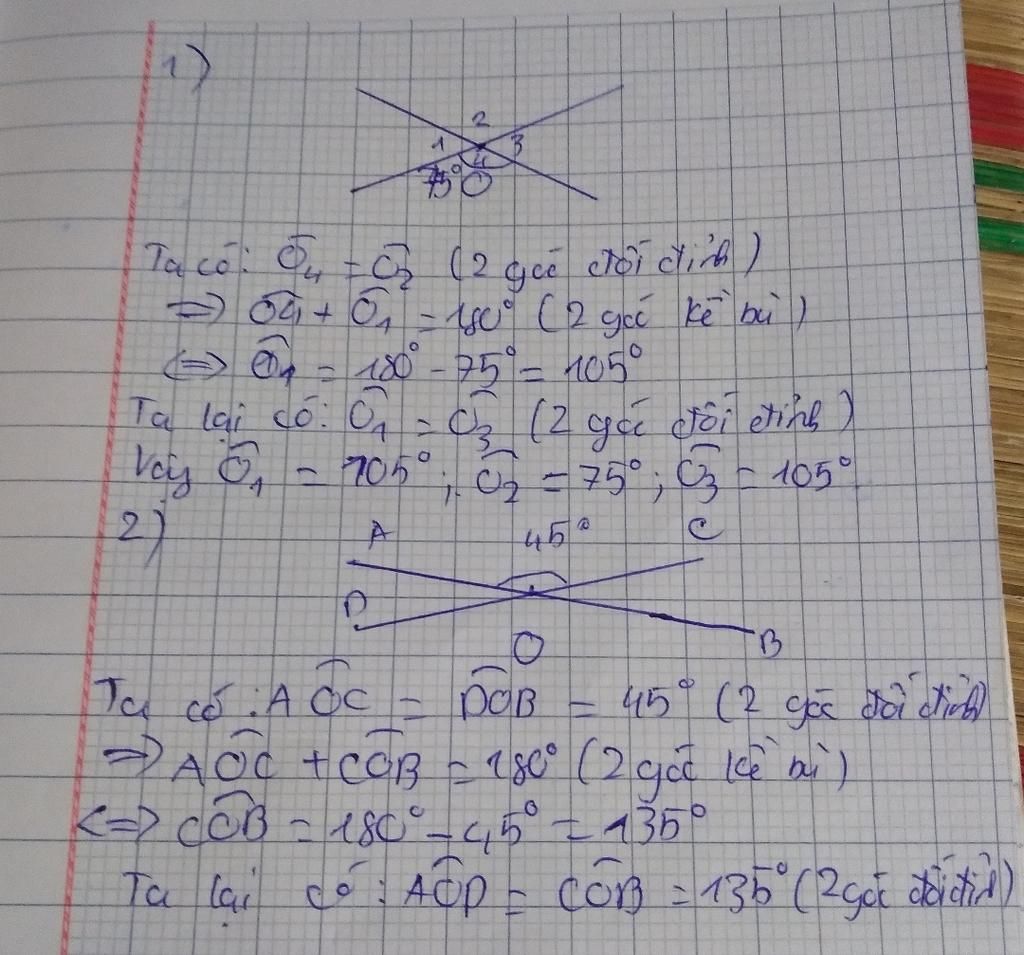 1)
2
1 3
4
75° O
Ta có: Ô₄ = Ô₂ (2 góc đối đỉnh)
=> Ô₄ + Ô₁ = 180° (2 góc kề bù)
<=> Ô₁ = 180° - 75° = 105°
Ta lại có: Ô₁ = Ô₃ (2 góc đối đỉnh)
Vậy Ô₁ = 105° ; Ô₂ = 75° ; Ô₃ = 105°
2)
A 45° C
D
O B
Ta có: AÔC = DÔB = 45° (2 góc đối đỉnh)
=> AÔC + CÔB = 180° (2 góc kề bù)
<=> CÔB = 180° - 45° = 135°
Ta lại có: AÔD = CÔB = 135° (2 góc đối đỉnh)